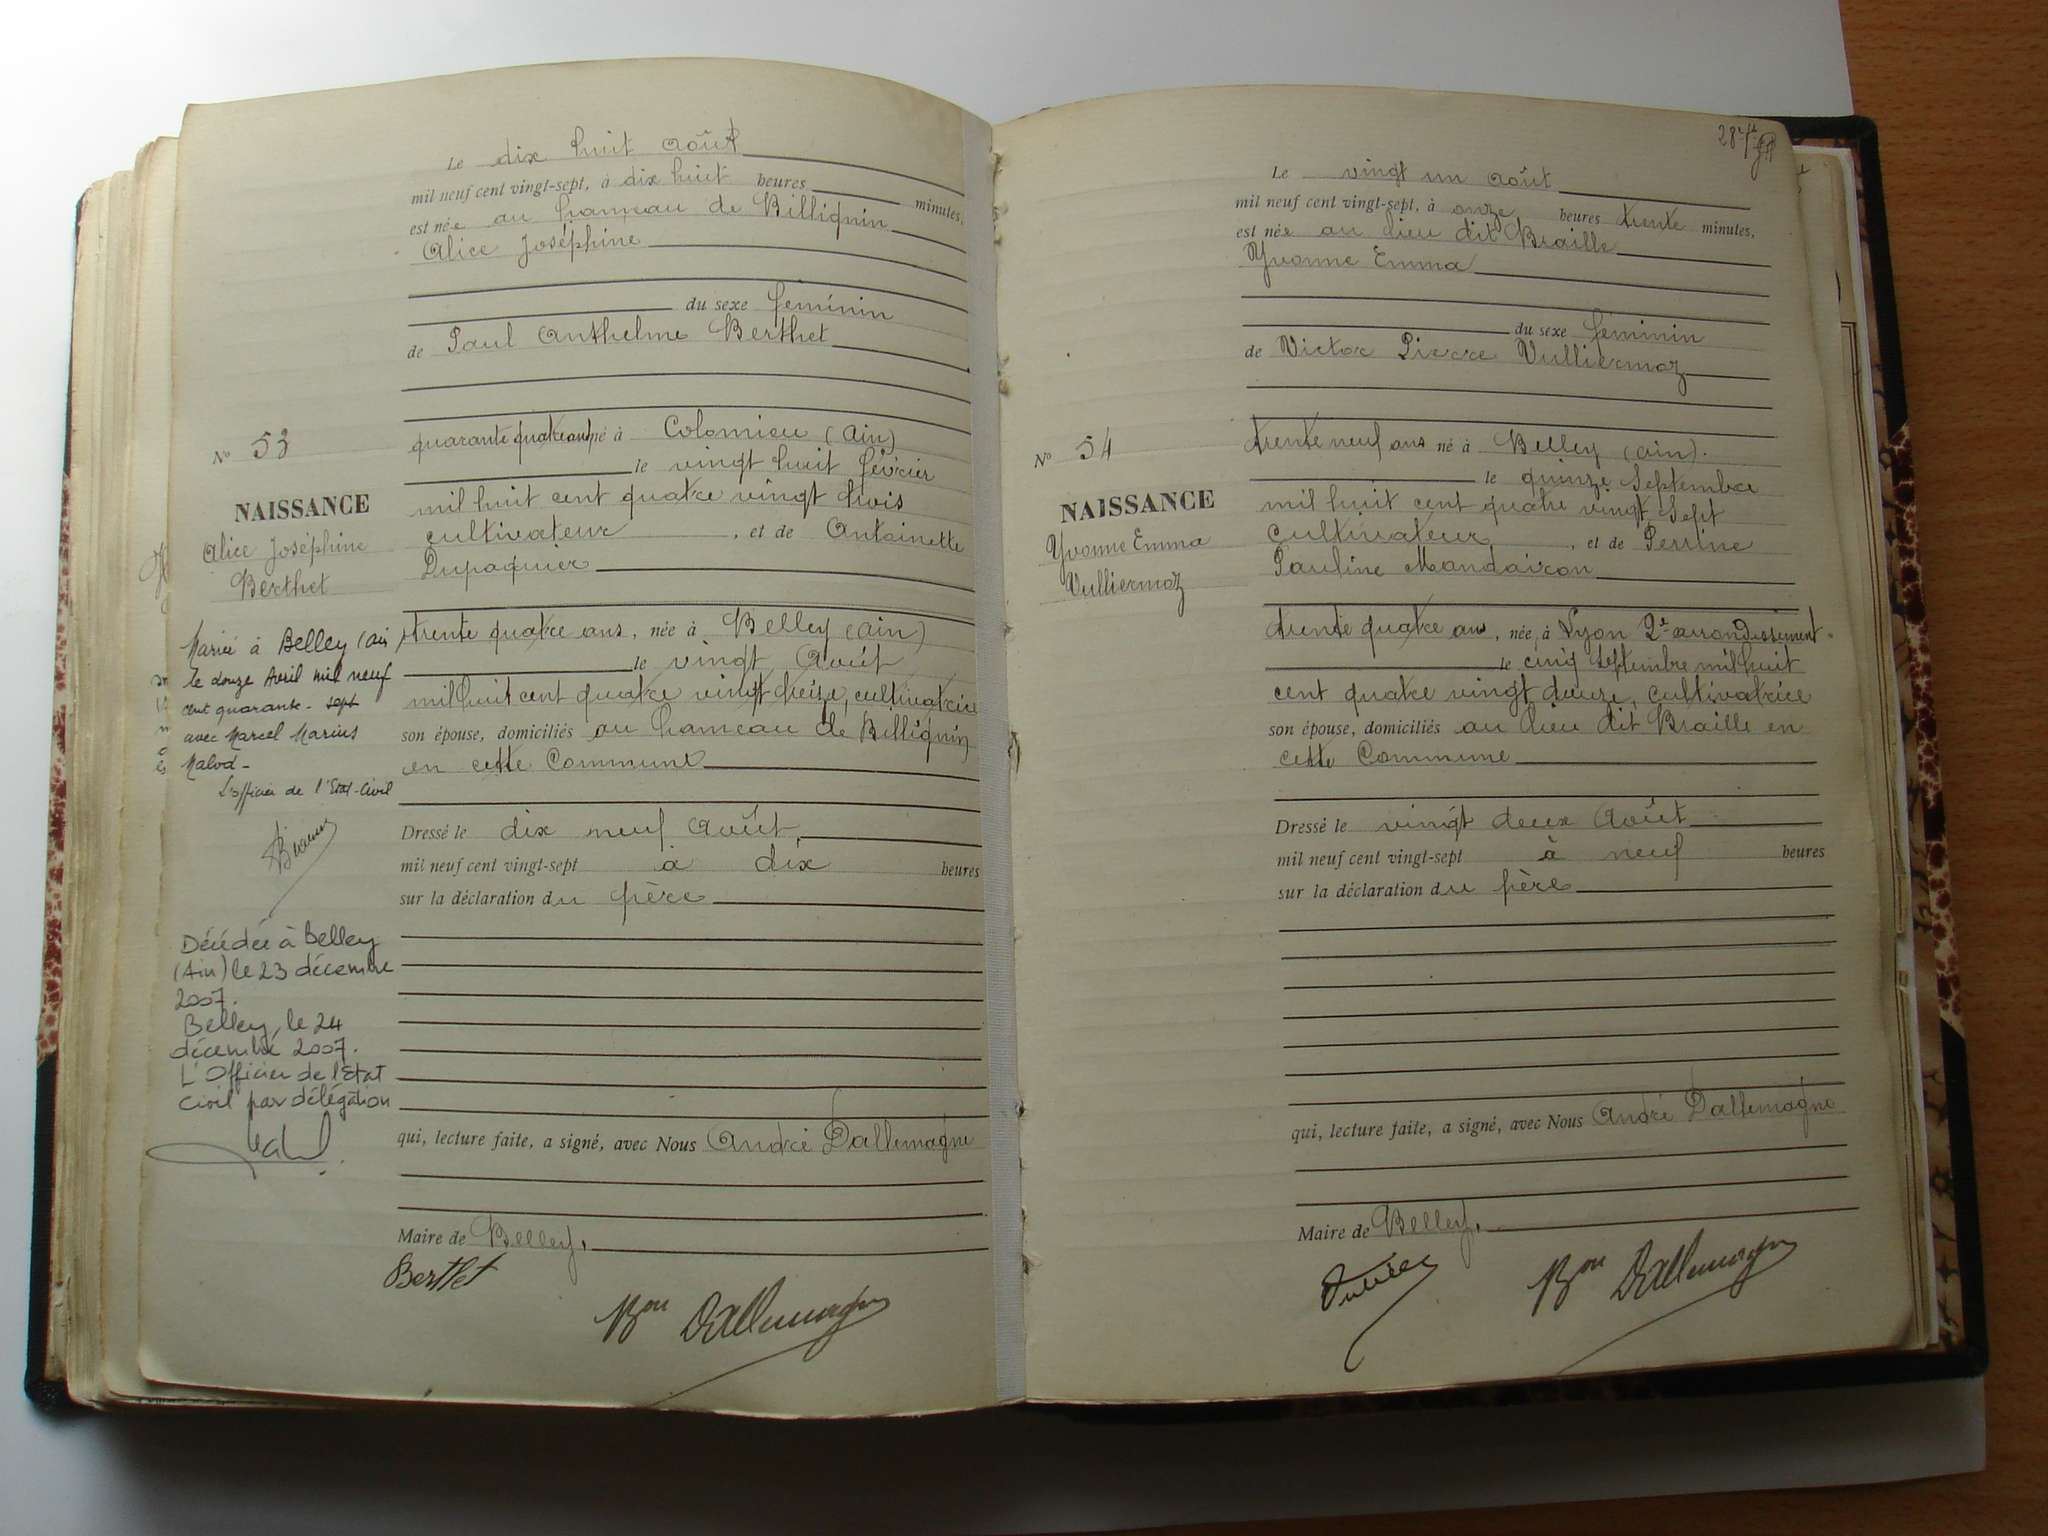 Le dix huit août
mil neuf cent vingt-sept, à dix huit heures minutes,
est née au hameau de Billignin
Alice Joséphine
du sexe féminin
de Paul Anthelme Berthet
quarante quatre ans né à Colomieu (Ain)
le vingt huit février
mil huit cent quatre vingt trois
cultivateur, et de Antoinette
Dupaquier
trente quatre ans, née à Belley (Ain)
le vingt Août
mil huit cent quatre vingt treize, cultivatrice
son épouse, domiciliés au hameau de Billignin
en cette Commune
Dressé le dix neuf Août
mil neuf cent vingt-sept à dix heures
sur la déclaration du père
qui, lecture faite, a signé, avec Nous André Dallemagne
Maire de Belley.
Berthet
Bon Dallemagne
No 53
NAISSANCE
Alice Joséphine
Berthet
Mariée à Belley (Ain)
le douze Avril mil neuf
cent quarante-sept
avec Marcel Marius
Malod-
L'officier de l'Etat-Civil
Décédée à Belley
(Ain) le 23 décembre
2007.
Belley, le 24
décembre 2007.
L'Officier de l'Etat
Civil par délégation
28e
Le vingt un août
mil neuf cent vingt-sept, à onze heures trente minutes,
est née au lieu dit Braille
Yvonne Emma
du sexe féminin
de Victor Pierre Vulliermoz
trente neuf ans né à Belley (Ain).
le quinze Septembre
mil huit cent quatre vingt Sept
cultivateur, et de Perrine
Pauline Mandairon
trente quatre ans, née à Lyon 2e arrondissement.
le cinq Septembre mil huit
cent quatre vingt douze, cultivatrice
son épouse, domiciliés au lieu dit Braille en
cette Commune
Dressé le vingt deux Août
mil neuf cent vingt-sept à neuf heures
sur la déclaration du père
qui, lecture faite, a signé, avec Nous André Dallemagne
Maire de Belley.
Bon Dallemagne
No 54
NAISSANCE
Yvonne Emma
Vulliermoz